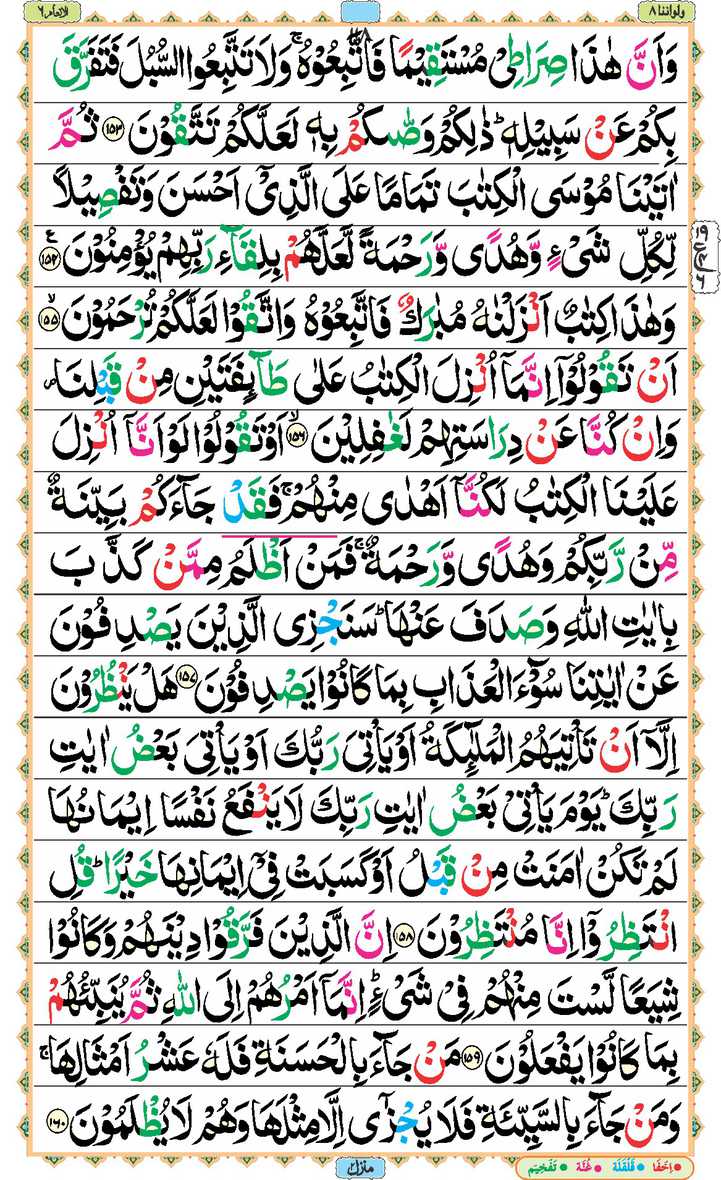 ولواننا ٨
١٤٨
الانعام ٦
وَاَنَّ هٰذَا صِرَاطِیْ مُسْتَقِیْمًا فَاتَّبِعُوْهُ ۚ وَلَا تَتَّبِعُوا السُّبُلَ فَتَفَرَّقَ
بِكُمْ عَنْ سَبِیْلِهٖ ؕ ذٰلِكُمْ وَصّٰىكُمْ بِهٖ لَعَلَّكُمْ تَتَّقُوْنَ ﴿۱۵۳﴾ ثُمَّ
اٰتَیْنَا مُوْسَی الْكِتٰبَ تَمَامًا عَلَی الَّذِیْۤ اَحْسَنَ وَتَفْصِیْلًا
لِّكُلِّ شَیْءٍ وَّهُدًی وَّرَحْمَةً لَّعَلَّهُمْ بِلِقَآءِ رَبِّهِمْ یُؤْمِنُوْنَ ﴿۱۵۴﴾
وَهٰذَا كِتٰبٌ اَنْزَلْنٰهُ مُبٰرَكٌ فَاتَّبِعُوْهُ وَاتَّقُوْا لَعَلَّكُمْ تُرْحَمُوْنَ ﴿۱۵۵﴾
اَنْ تَقُوْلُوْۤا اِنَّمَاۤ اُنْزِلَ الْكِتٰبُ عَلٰی طَآىِٕفَتَیْنِ مِنْ قَبْلِنَا ۪
وَاِنْ كُنَّا عَنْ دِرَاسَتِهِمْ لَغٰفِلِیْنَ ﴿۱۵۶﴾ اَوْ تَقُوْلُوْا لَوْ اَنَّاۤ اُنْزِلَ
عَلَیْنَا الْكِتٰبُ لَكُنَّاۤ اَهْدٰی مِنْهُمْ ۚ فَقَدْ جَآءَكُمْ بَیِّنَةٌ
مِّنْ رَّبِّكُمْ وَهُدًی وَّرَحْمَةٌ ۚ فَمَنْ اَظْلَمُ مِمَّنْ كَذَّبَ
بِاٰیٰتِ اللّٰهِ وَصَدَفَ عَنْهَا ؕ سَنَجْزِی الَّذِیْنَ یَصْدِفُوْنَ
عَنْ اٰیٰتِنَا سُوْٓءَ الْعَذَابِ بِمَا كَانُوْا یَصْدِفُوْنَ ﴿۱۵۷﴾ هَلْ یَنْظُرُوْنَ
اِلَّاۤ اَنْ تَاْتِیَهُمُ الْمَلٰٓىِٕكَةُ اَوْ یَاْتِیَ رَبُّكَ اَوْ یَاْتِیَ بَعْضُ اٰیٰتِ
رَبِّكَ ؕ یَوْمَ یَاْتِیْ بَعْضُ اٰیٰتِ رَبِّكَ لَا یَنْفَعُ نَفْسًا اِیْمَانُهَا
لَمْ تَكُنْ اٰمَنَتْ مِنْ قَبْلُ اَوْ كَسَبَتْ فِیْۤ اِیْمَانِهَا خَیْرًا ؕ قُلِ
انْتَظِرُوْۤا اِنَّا مُنْتَظِرُوْنَ ﴿۱۵۸﴾ اِنَّ الَّذِیْنَ فَرَّقُوْا دِیْنَهُمْ وَكَانُوْا
شِیَعًا لَّسْتَ مِنْهُمْ فِیْ شَیْءٍ ؕ اِنَّمَاۤ اَمْرُهُمْ اِلَی اللّٰهِ ثُمَّ یُنَبِّئُهُمْ
بِمَا كَانُوْا یَفْعَلُوْنَ ﴿۱۵۹﴾ مَنْ جَآءَ بِالْحَسَنَةِ فَلَهٗ عَشْرُ اَمْثَالِهَا ۚ
وَمَنْ جَآءَ بِالسَّیِّئَةِ فَلَا یُجْزٰۤی اِلَّا مِثْلَهَا وَهُمْ لَا یُظْلَمُوْنَ ﴿۱۶۰﴾
۱۹
ع
۶
منزل ۲
اِخْفَا قَلْقَلَة غُنَّة تَفْخِيْم